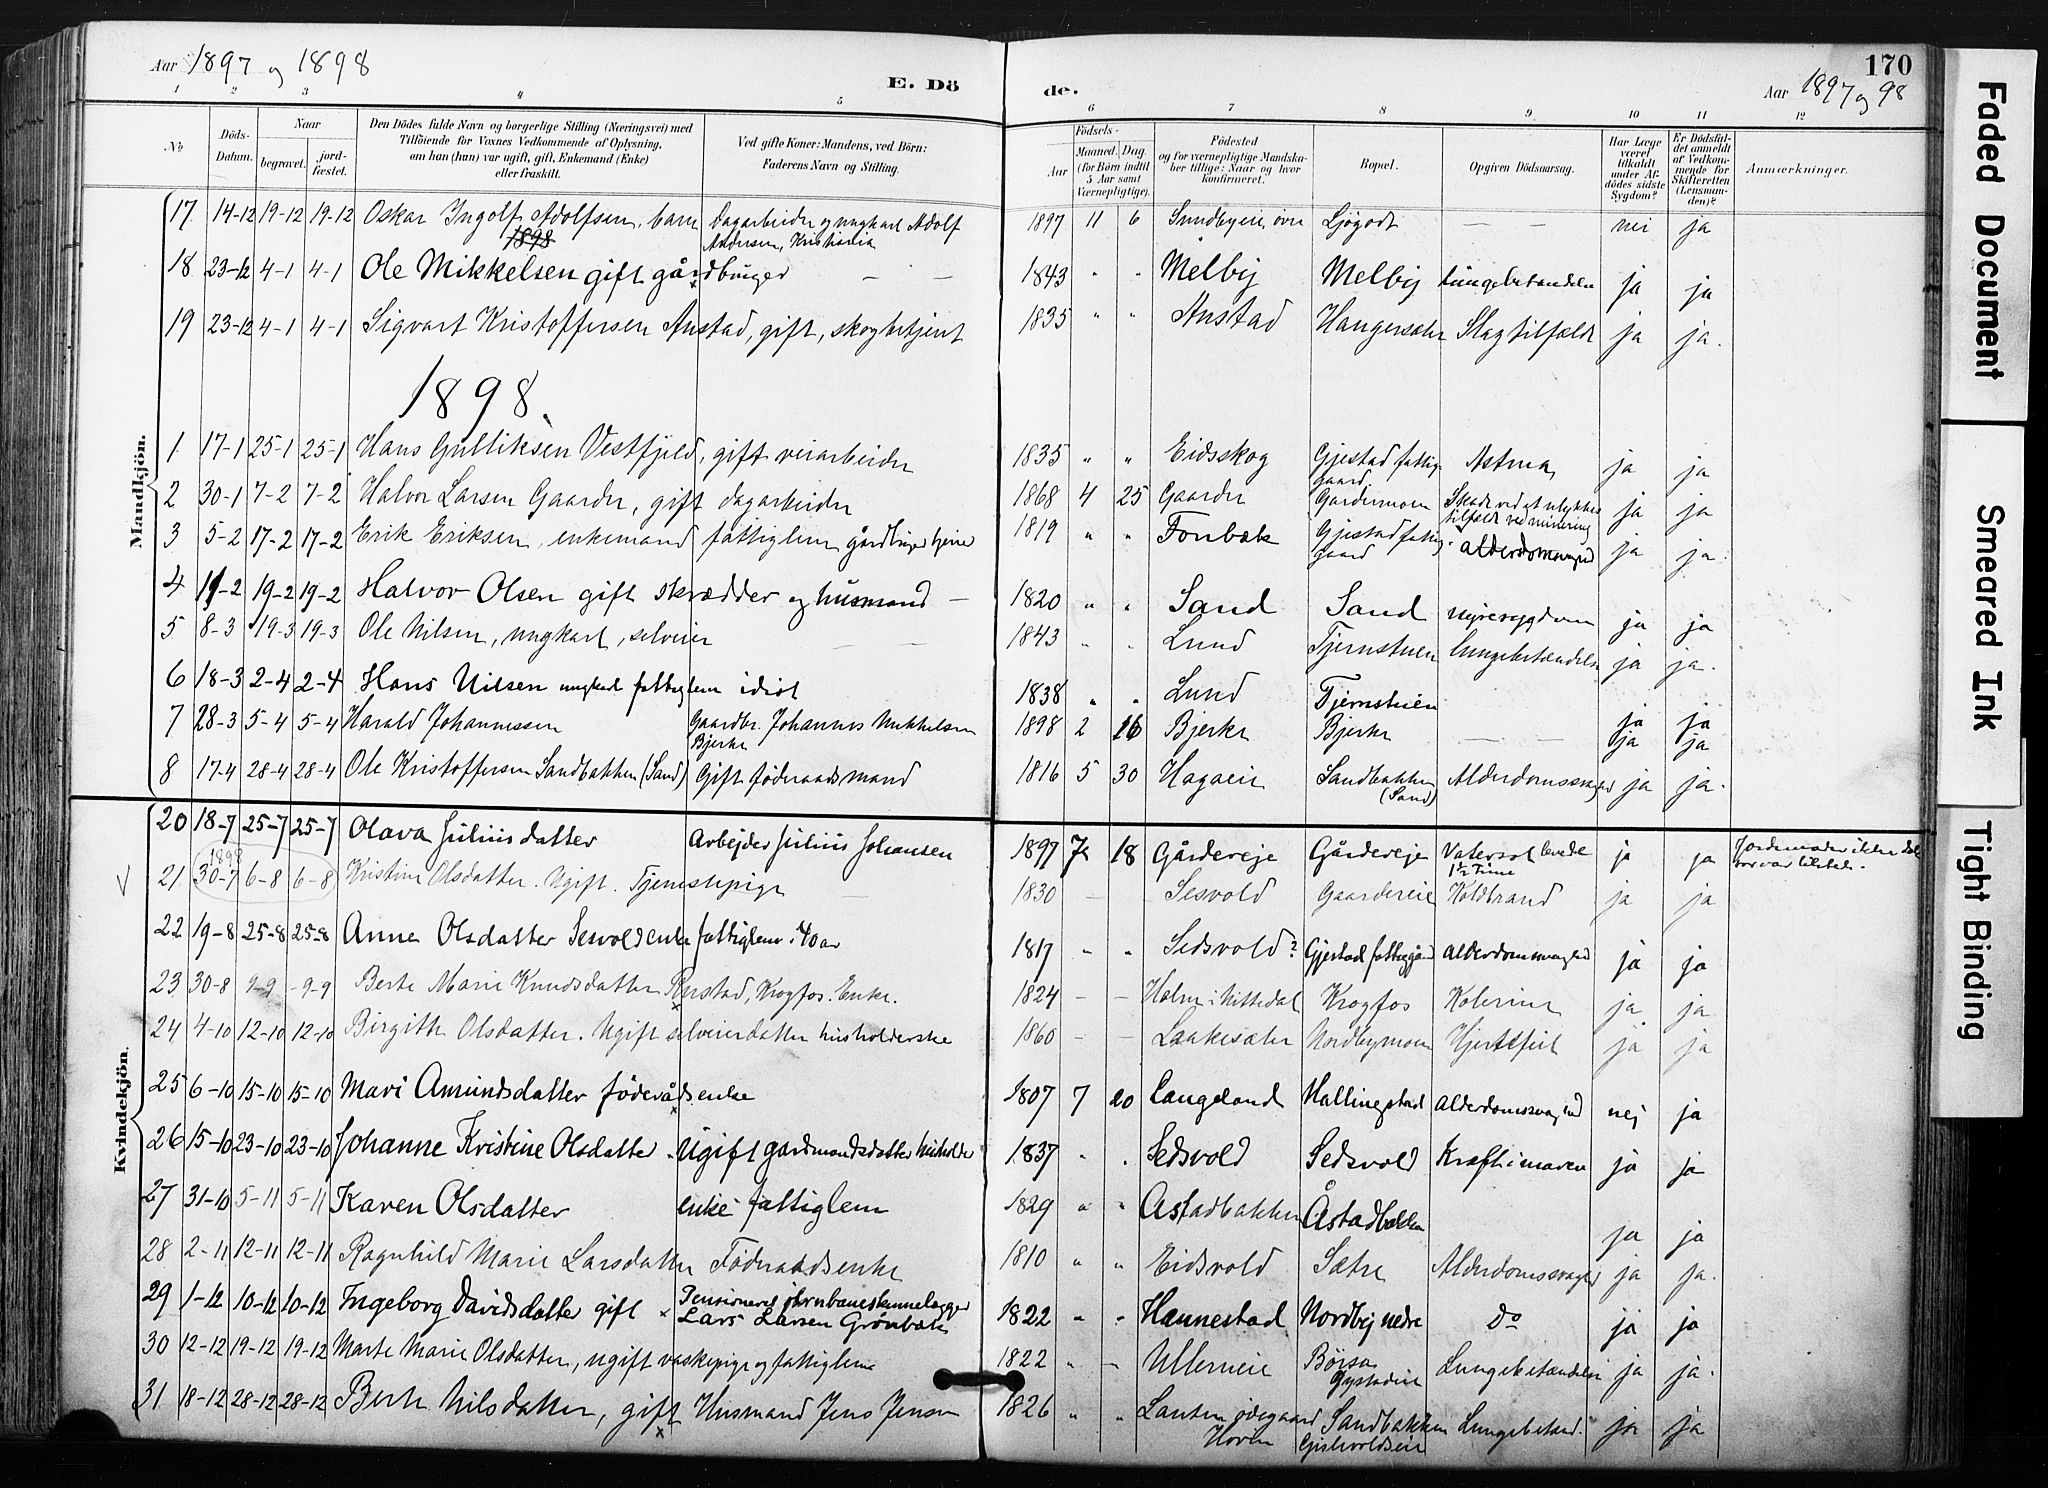 Aar 1897 og 1898
E. Dö
de.
170
Aar 1897 og 98
1 2 3 4 5 6 7 8 9 10 11 12
№
Döds-Datum.
Naar
begravet.
jord-fæstet.
Den Dödes fulde Navn og borgerlige Stilling (Næringsvei) med
Tilföiende for Voxnes Vedkommende af Oplysning,
om han (hun) var ugift, gift, Enkemand (Enke)
eller fraskilt.
Ved gifte Koner: Mandens, ved Börn:
Faderens Navn og Stilling.
Födsels-
Aar
Maaned.
Dag.
(for Börn indtil
5 Aar samt
Værnepligtige).
Födested
og for værnepligtige Mandska-
ber tillige: Naar og hvor
konfirmeret.
Bopæl.
Opgiven Dödsaarsag.
Har Læge
været
tilkaldt
under Af-
dödes sidste
Sygdom?
Er Dödsfal-
det anmeldt
af Vedkom-
mende for
Skifteretten
(Lensman-
den)?
Anmærkninger.
Mandkjön.
17 14-12 19-12 19-12 Oskar Ingolf Adolfsen, barn Dagarbeider og ungkarl Adolf Andersen, Kristiania 1897 11 6 Sundbyeie, övre Ljögodt — — nei ja
1898
18 23-12 4-1 4-1 Ole Mikkelsen gift gårdbruger — — 1843 " " Melby Melby Lungebetændelse ja ja
19 23-12 4-1 4-1 Sigvart Kristoffersen Anstad, gift, skogbetjent 1835 " " Anstad Haugersæter Slagtilfælde ja ja.
1898.
1 17-1 25-1 25-1 Hans Gulliksen Vestfjeld, gift veiarbeider 1835 " " Eidsskog Gjestad fattiggaard Astma, ja ja
2 30-1 7-2 7-2 Halvor Larsen Gaarder, gift dagarbeider 1868 4 25 Gaarder Gardermoen Skade ved et ulykkestilfælde ved minering ja ja
3 5-2 17-2 17-2 Erik Eriksen, enkemand fattiglem 1819 " " Fonbæk Gjestad fattiggaard Alderdomssvaghed ja ja
4 11-2 19-2 19-2 Halvor Olsen gift skrædder og husmand — 1820 " " Sand Sand Nyresygdom ja ja
5 8-3 19-3 19-3 Ole Nilsen, ungkarl, selveier — 1843 " " Lund Tjernstuen Lungebetændelse ja ja.
6 18-3 2-4 2-4 Hans Nilsen ungkarl fattiglem idiot 1838 " " Lund Tjernstuen ja ja
7 28-3 5-4 5-4 Harald Johannessen Gaardbr. Johannes Mikkelsen Bjerke 1898 2 16 Bjerke Bjerke — — ja ja
8 17-4 28-4 28-4 Ole Kristoffersen Sandbakken (Sand) Gift föderaadsmand 1816 5 30 Hagaeie Sandbakken (Sand) Alderdomssvaghed ja ja.
Kvindekjön.
20 18-7 25-7 25-7 Olava Juliusdatter Arbejder Julius Johansen 1897 7 18 Gårdereje Gårdereje Vatersot levede 1½ Time ja ja
1898
21 30-7 6-8 6-8 Kristine Olsdatter. Ugift. Tjenestepige — 1830 — — Sesvold Gaardereie Koldbrand ja ja
22 19-8 25-8 25-8 Anne Olsdatter Sesvold enke fattiglem i 40 år 1817 - " Sedsvold? Gjestad fattiggård Alderdomssvaghed ja ja
23 30-8 9-9 9-9 Berte Marie Knudsdatter Rustad, Krogfos. Enke. 1824 — — Holm i Nittedal Krogfos Kolerine ja ja
24 4-10 12-10 12-10 Birgitte Olsdatter. Ugift selveierdatter husholderske 1860 — — Laakesæter Nordbymoen Hjertefeil ja ja
25 6-10 15-10 15-10 Mari Amundsdatter föderådsenke 1807 7 20 Langeland Hallingstad Alderdomssvaghed nej ja
26 15-10 23-10 23-10 Johanne Kristine Olsdatter Ugift gardmandsdatter husholder 1837 " " Sedsvold Sedsvold Kræft i maven ja ja
27 31-10 5-11 5-11 Karen Olsdatter enke fattiglem 1829 " " Åstadbakken Åstadbakken ja ja
28 2-11 12-11 12-11 Ragnhild Marie Larsdatter Föderaadsenke 1810 " " Eidsvold Sætre Alderdomssvaghed ja ja.
29 1-12 10-12 10-12 Ingeborg Davidsdatter gift Pensioneret jernbaneskinnelægger Lars Larsen Grönbæk 1822 " " Hannestad Nordby nedre Do ja ja
30 12-12 19-12 19-12 Marte Marie Olsdatter, ugift vaskepige og fattiglem 1822 " — Ullerneie Lungebetændelse ja ja.
31 18-12 28-12 28-12 Berte Nilsdatter, gift Husmand Jens Jensen 1826 " " Hoven Sandbakken Lungebetænd. ja ja
Faded Document
Smeared Ink
Tight Binding